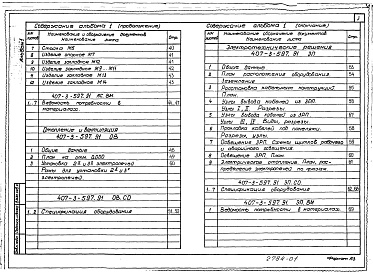 Содержание альбома I (продолжение)
№№ листов
Наименование и обозначение документов
Наименование листа
Стр.
7 Стойка М6 40
8 Изделие опорное М7 41
9 Изделие закладное М12 43
10 Изделия закладные М9...М11 43
11 Изделие закладное М13 43
12 Изделие закладное М14 43
407-3-597.91 КС.ВМ
1, 2 Ведомость потребности в материалах. 44, 47
Отопление и вентиляция
407-3-597.91 ОВ
1 Общие данные 48
2 План на отм. 0.000 49
3 Установка 2х и 3х электропечей 50
Рамы для установки 2х и 3х электропечей
407-3-597.91 ОВ.СО
1, 2 Спецификация оборудования 51, 52
Содержание альбома I (окончание)
№№ листов
Наименование и обозначение документов
Наименование листа
Стр.
Электротехнические решения
407-3-597.91 ЭП
1 Общие данные 53
2 План расположения оборудования 54
Заземление
3 Расстановка кабельных конструкций 55
План.
4 Узлы вывода кабелей из ЗРУ. 56
Узлы I, II. Разрезы
5 Узлы вывода кабелей из ЗРУ. 57
Узлы III, IV. Виды, разрезы
6 Прокладка кабелей под панелями. 58
Разрезы
7 Освещение ЗРУ. Схемы щитков рабочего 59
и аварийного освещения
8 Освещение ЗРУ. План 60
9 Электрическое отопление. План, рас- 61
407-3-597.91 ЭП.СО
1, 7 Спецификация оборудования
407-3-597.91 ЭП.ВМ
1 Ведомость потребности в материалах. 69
2784-01
Формат А3